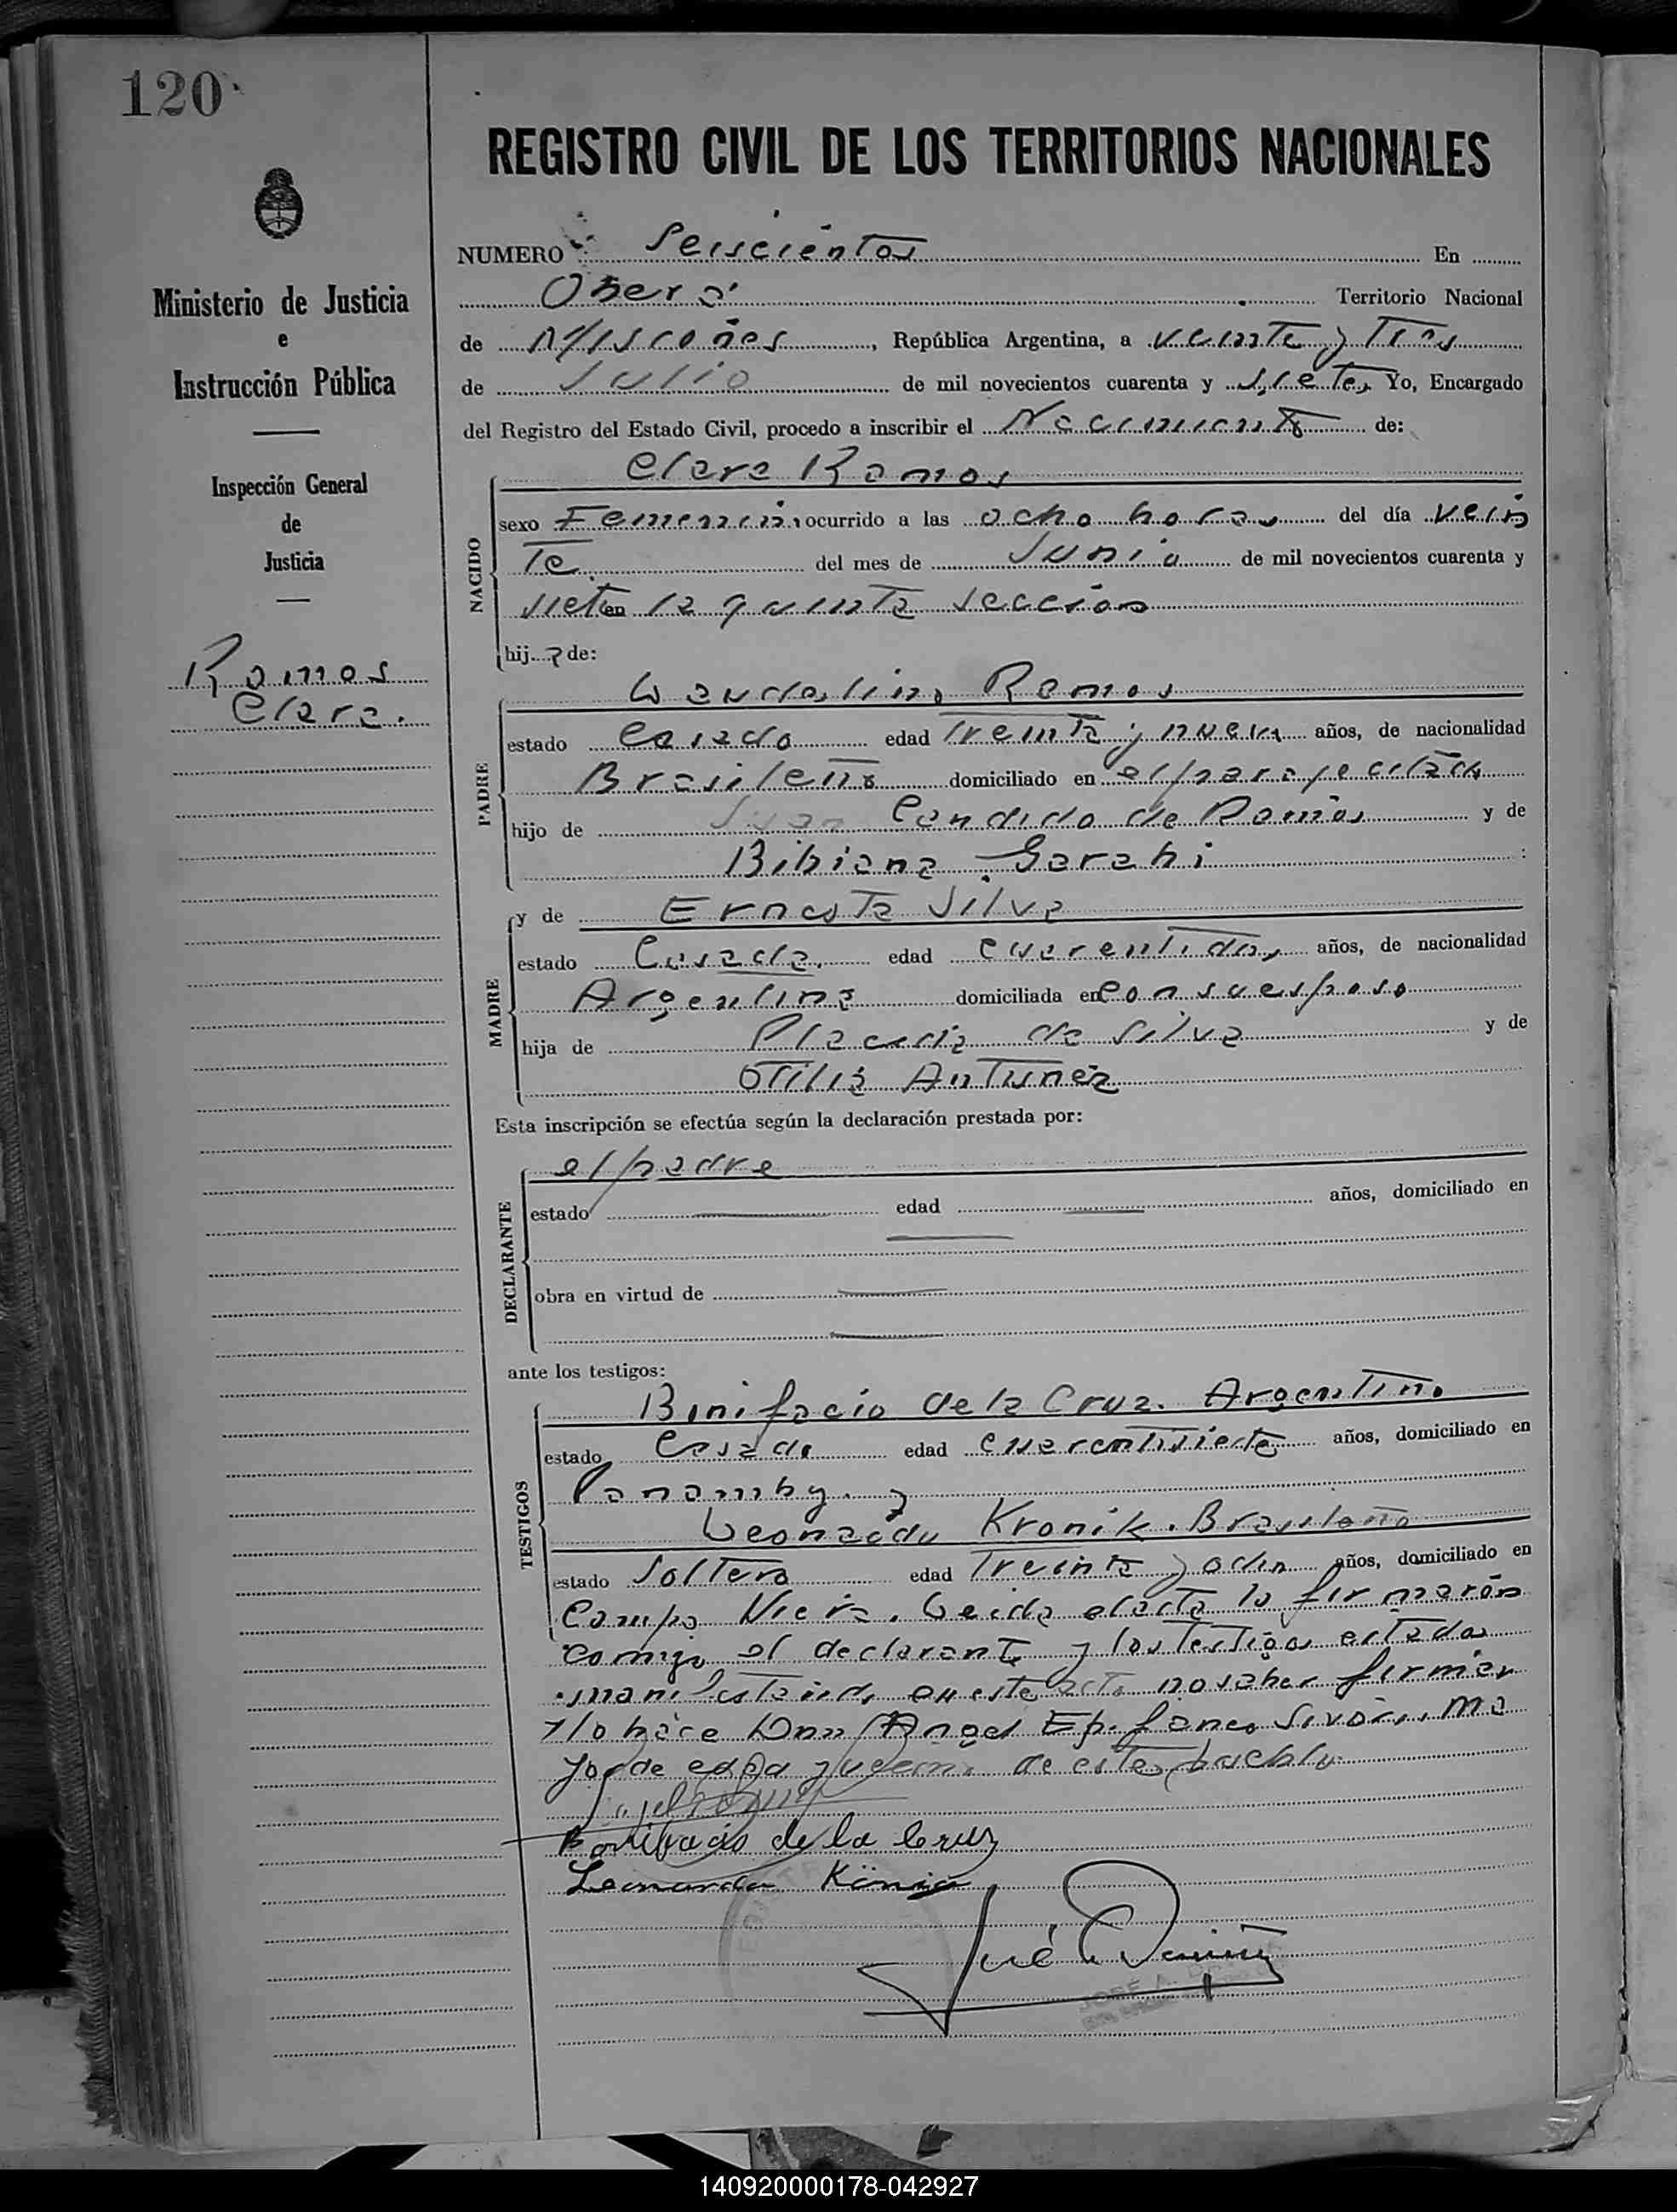 120
REGISTRO CIVIL DE LOS TERRITORIOS NACIONALES
Ministerio de Justicia
e
Instrucción Pública
Inspección General
de
Justicia
Ramos
Clara.
NUMERO Seiscientos En
Oberá Territorio Nacional
de Misiones, República Argentina, a veinte y tres
de Julio de mil novecientos cuarenta y siete, Yo, Encargado
del Registro del Estado Civil, procedo a inscribir el Nacimiento de:
NACIDO
Clara Ramos
sexo Femenino, ocurrido a las ocho horas del día vein
te del mes de Junio de mil novecientos cuarenta y
siete en la quinta sección
hij a de:
PADRE
Wendelino Ramos
estado Casado edad treinta y nueve años, de nacionalidad
Brasileño domiciliado en el paraje citado
hijo de Juan Candido de Ramos y de
Bibiana Garahi
MADRE
y de Ernesta Silva
estado Casada edad cuarentidos años, de nacionalidad
Argentina domiciliada en con su esposo
hija de Placida de Silva y de
Otilia Antunez
Esta inscripción se efectúa según la declaración prestada por:
DECLARANTE
el padre
estado edad años, domiciliado en
obra en virtud de
ante los testigos:
TESTIGOS
Bonifacio de la Cruz. Argentino
estado Casado edad cuarentisiete años, domiciliado en
Panamby. y
Leonardo Kronik. Brasileño
estado Soltero edad treinta y ocho años, domiciliado en
Campo Viera. Leida el acta la firmarón
comigo el declarante y los testigos citados
manifestando en este acto no saber firmar
y lo hace Don Angel Epifaneo Sivori, Ma
yor de edad y vecino de este pueblo
Bonifacio de la Cruz
Leonardo König
José
JOSE A.
140920000178-042927